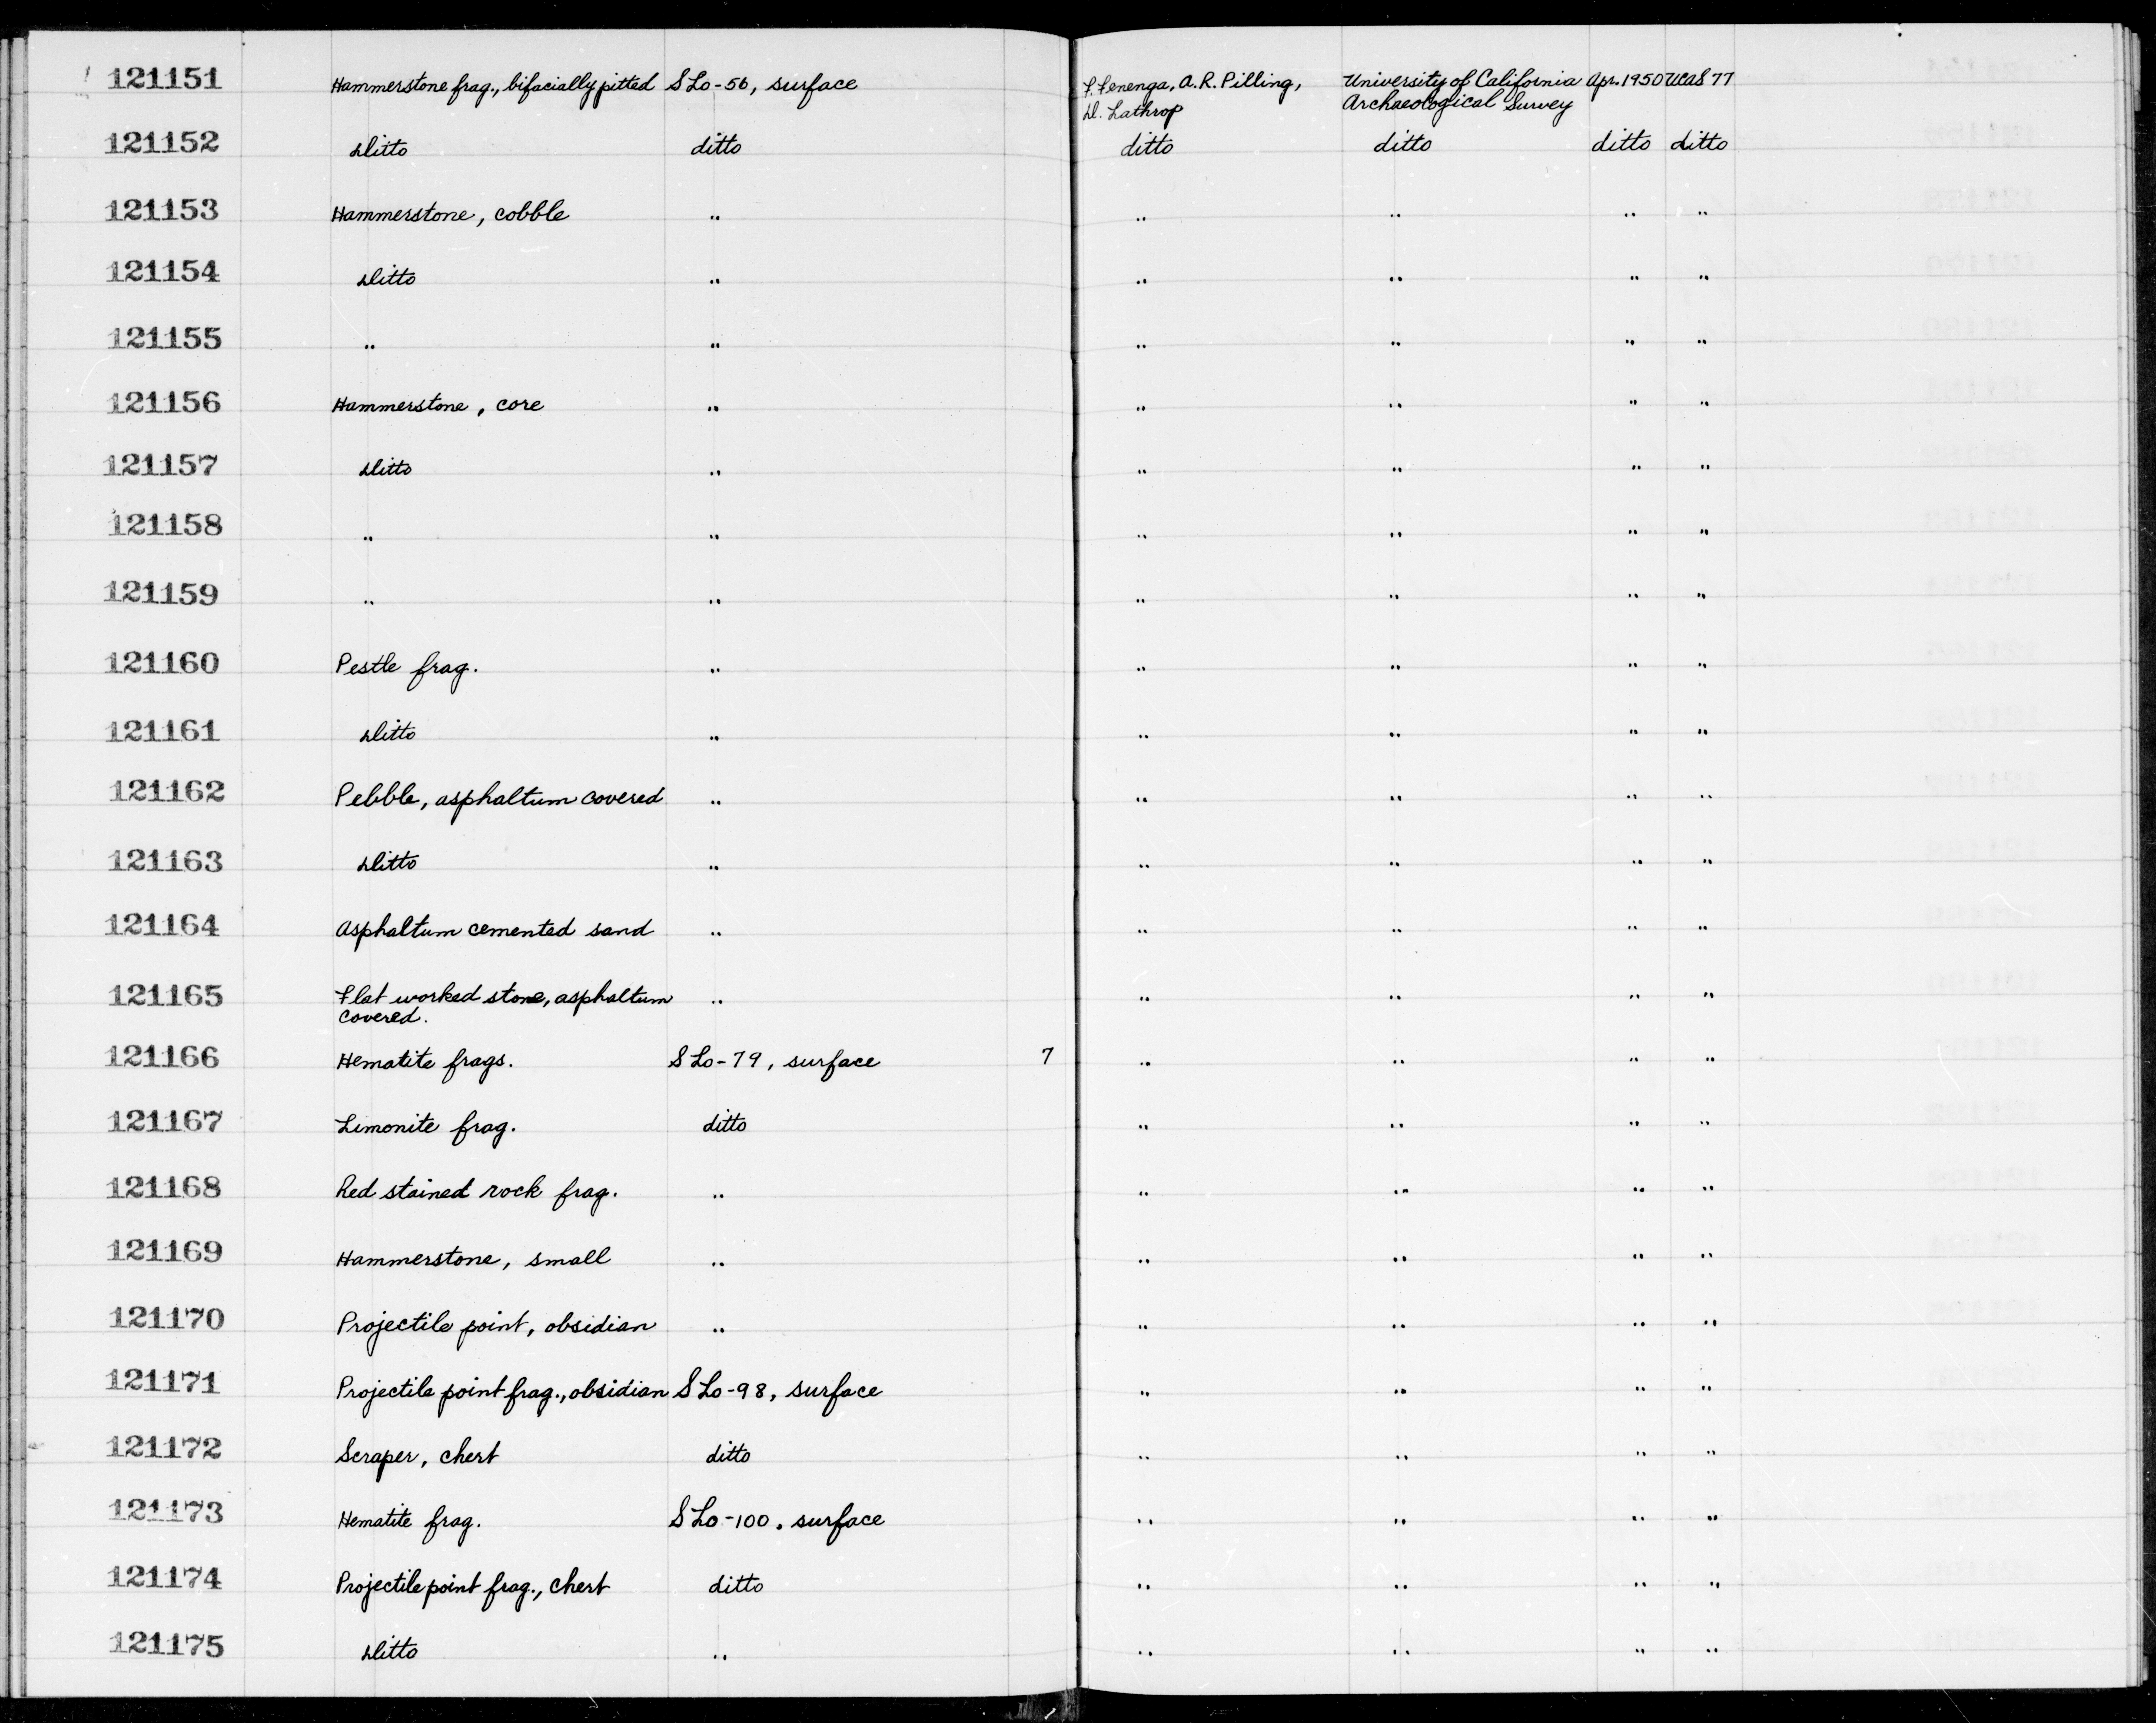 121151 Hammerstone frag., bifacially pitted SLo-56, surface F. Fenenga, A.R. Pilling, University of California Apr. 1950 UCAS 77
D. Lathrop Archaeological Survey
121152 Ditto ditto ditto ditto ditto ditto
121153 Hammerstone, cobble " " " " "
121154 Ditto " " " " "
121155 " " " " " "
121156 Hammerstone, core " " " " "
121157 Ditto " " " " "
121158 " " " " " "
121159 " " " " " "
121160 Pestle frag. " " " " "
121161 Ditto " " " " "
121162 Pebble, asphaltum covered " " " " "
121163 Ditto " " " " "
121164 Asphaltum cemented sand " " " " "
121165 Flat worked stone, asphaltum " " " " "
covered.
121166 Hematite frags. SLo-79, surface 7 " " " "
121167 Limonite frag. ditto " " " "
121168 Red stained rock frag. " " " " "
121169 Hammerstone, small " " " " "
121170 Projectile point, obsidian " " " " "
121171 Projectile point frag., obsidian SLo-98, surface " " " "
121172 Scraper, chert ditto " " " "
121173 Hematite frag. SLo-100, surface " " " "
121174 Projectile point frag., chert ditto " " " "
121175 Ditto " " " " "